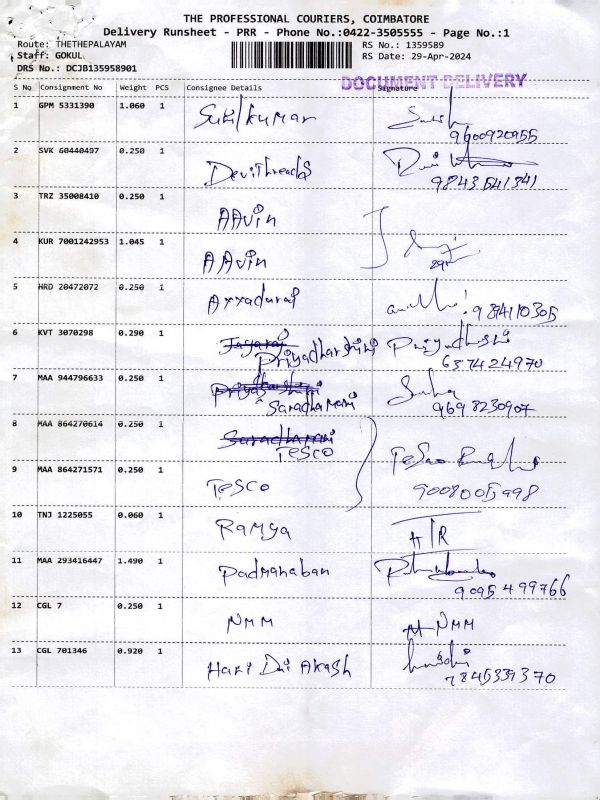 THE PROFESSIONAL COURIERS, COIMBATORE
Delivery Runsheet - PRR - Phone No.:0422-3505555 - Page No.:1
Route: THETHEPALAYAM RS No.: 1359589
Staff: GOKUL RS Date: 29-Apr-2024
DRS No.: DCJB135958901
DOCUMENT DELIVERY
S No Consignment No Weight PCS Consignee Details Signature
1 GPM 5331390 1.060 1 Sukilkumar
9600920955
2 SVK 60440497 0.250 1 DeviThreads
9843541341
3 TRZ 35008410 0.250 1 AAvin
4 KUR 7001242953 1.045 1 AAvin
5 HRD 20472072 0.250 1 Ayyadurai
6 KVT 3070298 0.290 1 Priyadharshini Priyadhshi
637424970
7 MAA 944796633 0.250 1 Saradhamani
9698230907
8 MAA 864270614 0.250 1 Saradhamani
TESCO
9 MAA 864271571 0.250 1 TESCO
10 TNJ 1225055 0.060 1 Ramya
11 MAA 293416447 1.490 1 Padmanaban
9095499766
12 CGL 7 0.250 1 NMM NMM
13 CGL 701346 0.920 1 Akash